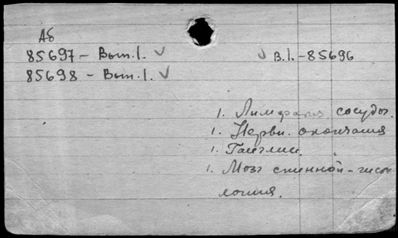 Аб
85697 - Вып.1. √ √ В.1. - 85696
85698 - Вып.1. √
1. Лимфатич. сосуды.
1. Нервн. окончания
1. Ганглии.
1. Мозг спинной - гисто
логия.